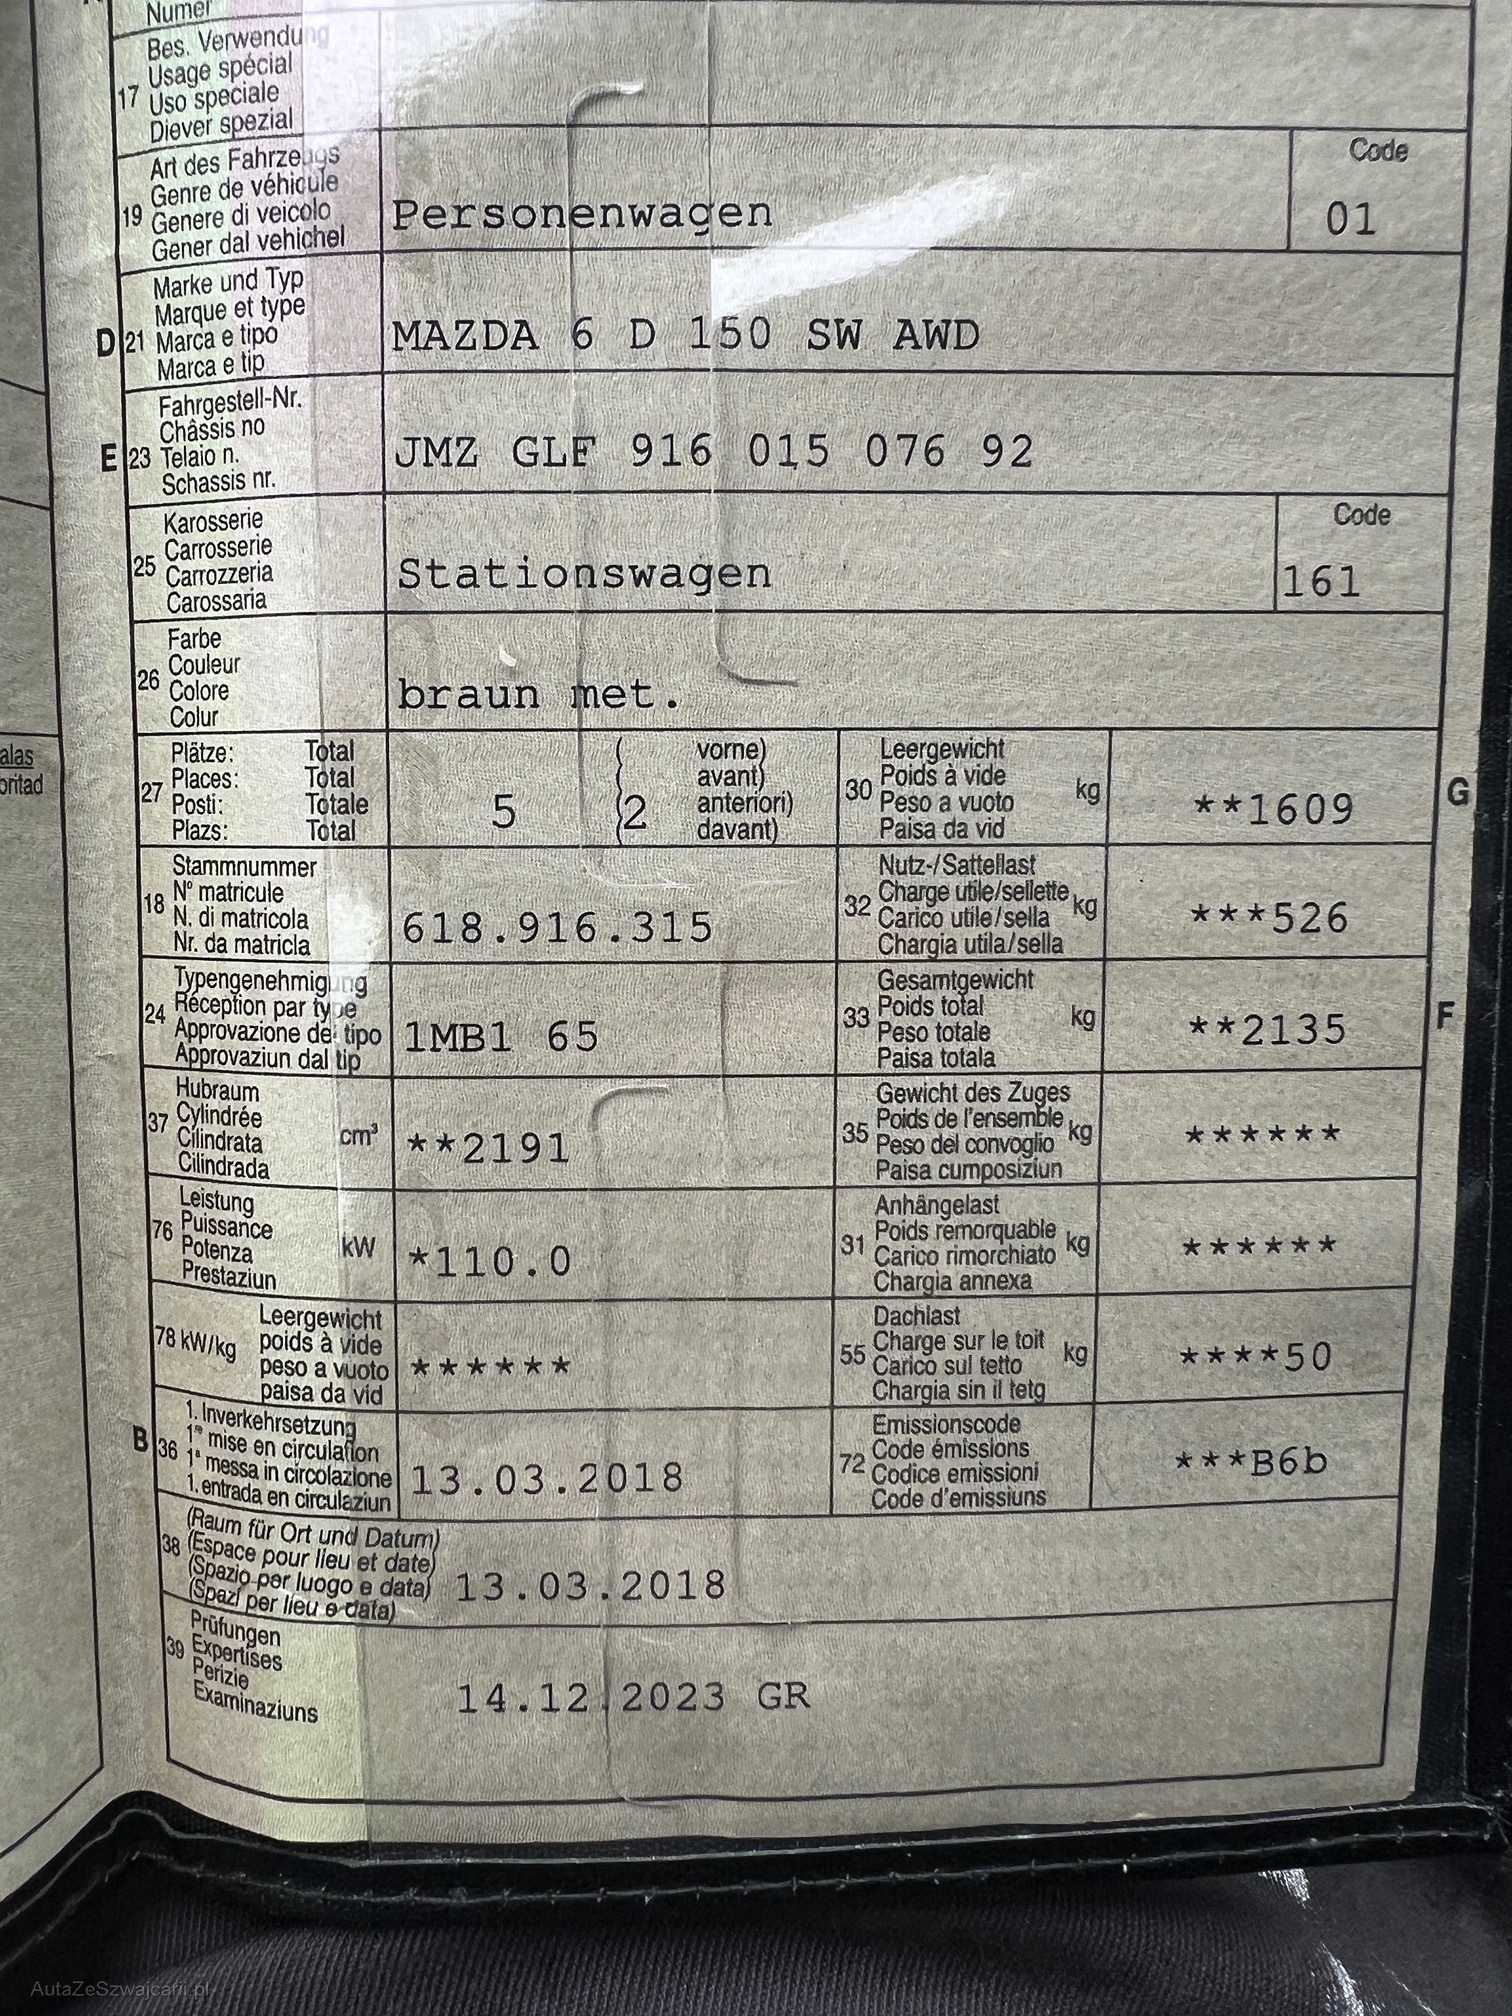 Numer
17 Bes. Verwendung
Usage spécial
Uso speciale
Diever spezial
19 Art des Fahrzeugs
Genre de véhicule
Genere di veicolo
Gener dal vehichel
Personenwagen
Code
01
D 21 Marke und Typ
Marque et type
Marca e tipo
Marca e tip
MAZDA 6 D 150 SW AWD
E 23 Fahrgestell-Nr.
Châssis no
Telaio n.
Schassis nr.
JMZ GLF 916 015 076 92
25 Karosserie
Carrosserie
Carrozzeria
Carossaria
Stationswagen
Code
161
26 Farbe
Couleur
Colore
Colur
braun met.
alas
oritad
27 Plätze: Total
Places: Total
Posti: Totale
Plazs: Total
5
(2
( vorne)
( avant)
( anteriori)
( davant)
30 Leergewicht
Poids à vide
Peso a vuoto
Paisa da vid
kg
**1609
G
18 Stammnummer
N° matricule
N. di matricola
Nr. da matricla
618.916.315
32 Nutz-/Sattellast
Charge utile/sellette
Carico utile/sella
Chargia utila/sella
kg
***526
24 Typengenehmigung
Réception par type
Approvazione del tipo
Approvaziun dal tip
1MB1 65
33 Gesamtgewicht
Poids total
Peso totale
Paisa totala
kg
**2135
F
37 Hubraum
Cylindrée
Cilindrata
Cilindrada
cm³
**2191
35 Gewicht des Zuges
Poids de l'ensemble
Peso del convoglio
Paisa cumposiziun
kg
******
76 Leistung
Puissance
Potenza
Prestaziun
kW
*110.0
31 Anhängelast
Poids remorquable
Carico rimorchiato
Chargia annexa
kg
******
78 kW/kg
Leergewicht
poids à vide
peso a vuoto
paisa da vid
******
55 Dachlast
Charge sur le toit
Carico sul tetto
Chargia sin il tetg
kg
****50
B 36 1. Inverkehrsetzung
1re mise en circulation
1a messa in circolazione
1. entrada en circulaziun
13.03.2018
72 Emissionscode
Code émissions
Codice emissioni
Code d'emissiuns
***B6b
38 (Raum für Ort und Datum)
(Espace pour lieu et date)
(Spazio per luogo e data)
(Spazi per lieu e data)
13.03.2018
39 Prüfungen
Expertises
Perizie
Examinaziuns
14.12.2023 GR
AutaZeSzwajcarii.pl